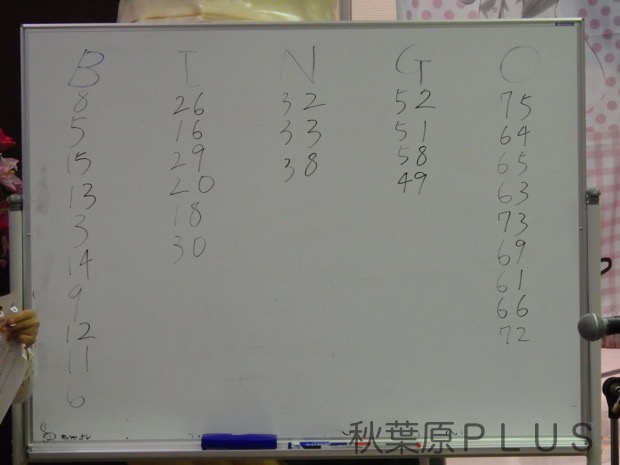 B I N G O
8 26 32 52 75
5 16 33 51 64
15 29 38 58 65
13 20 49 63
3 18 73
14 30 69
9 61
12 66
11 72
6
秋葉原PLUS